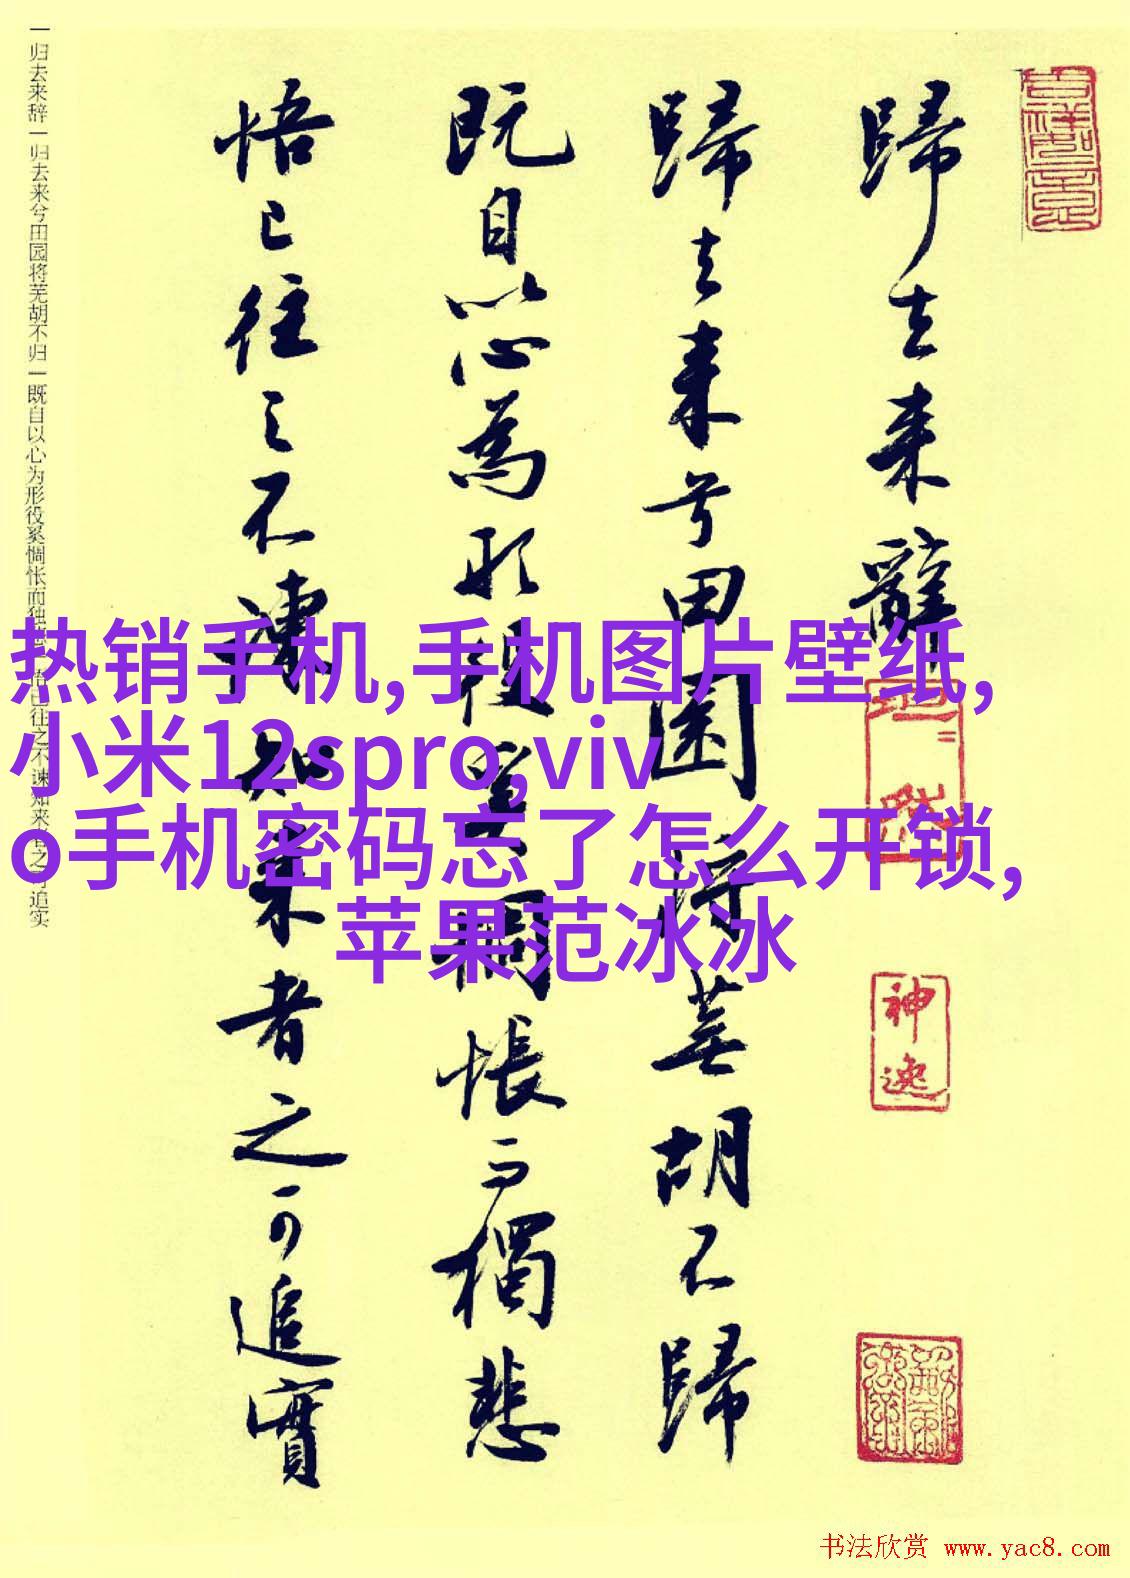 归去来辞
归去来兮田园将芜胡不归
既自以心为形役奚惆怅而独
悟已往之不谏知来者之可追实
歸去来辭
歸去来兮田園将蕪胡不歸
既自以心為形役奚惆悵而獨悲
悟已往之不諫知来者之可追實
神逸
热销手机,手机图片壁纸,
小米12spro,viv
o手机密码忘了怎么开锁,
苹果范冰冰
书法欣赏 www.yac8.com